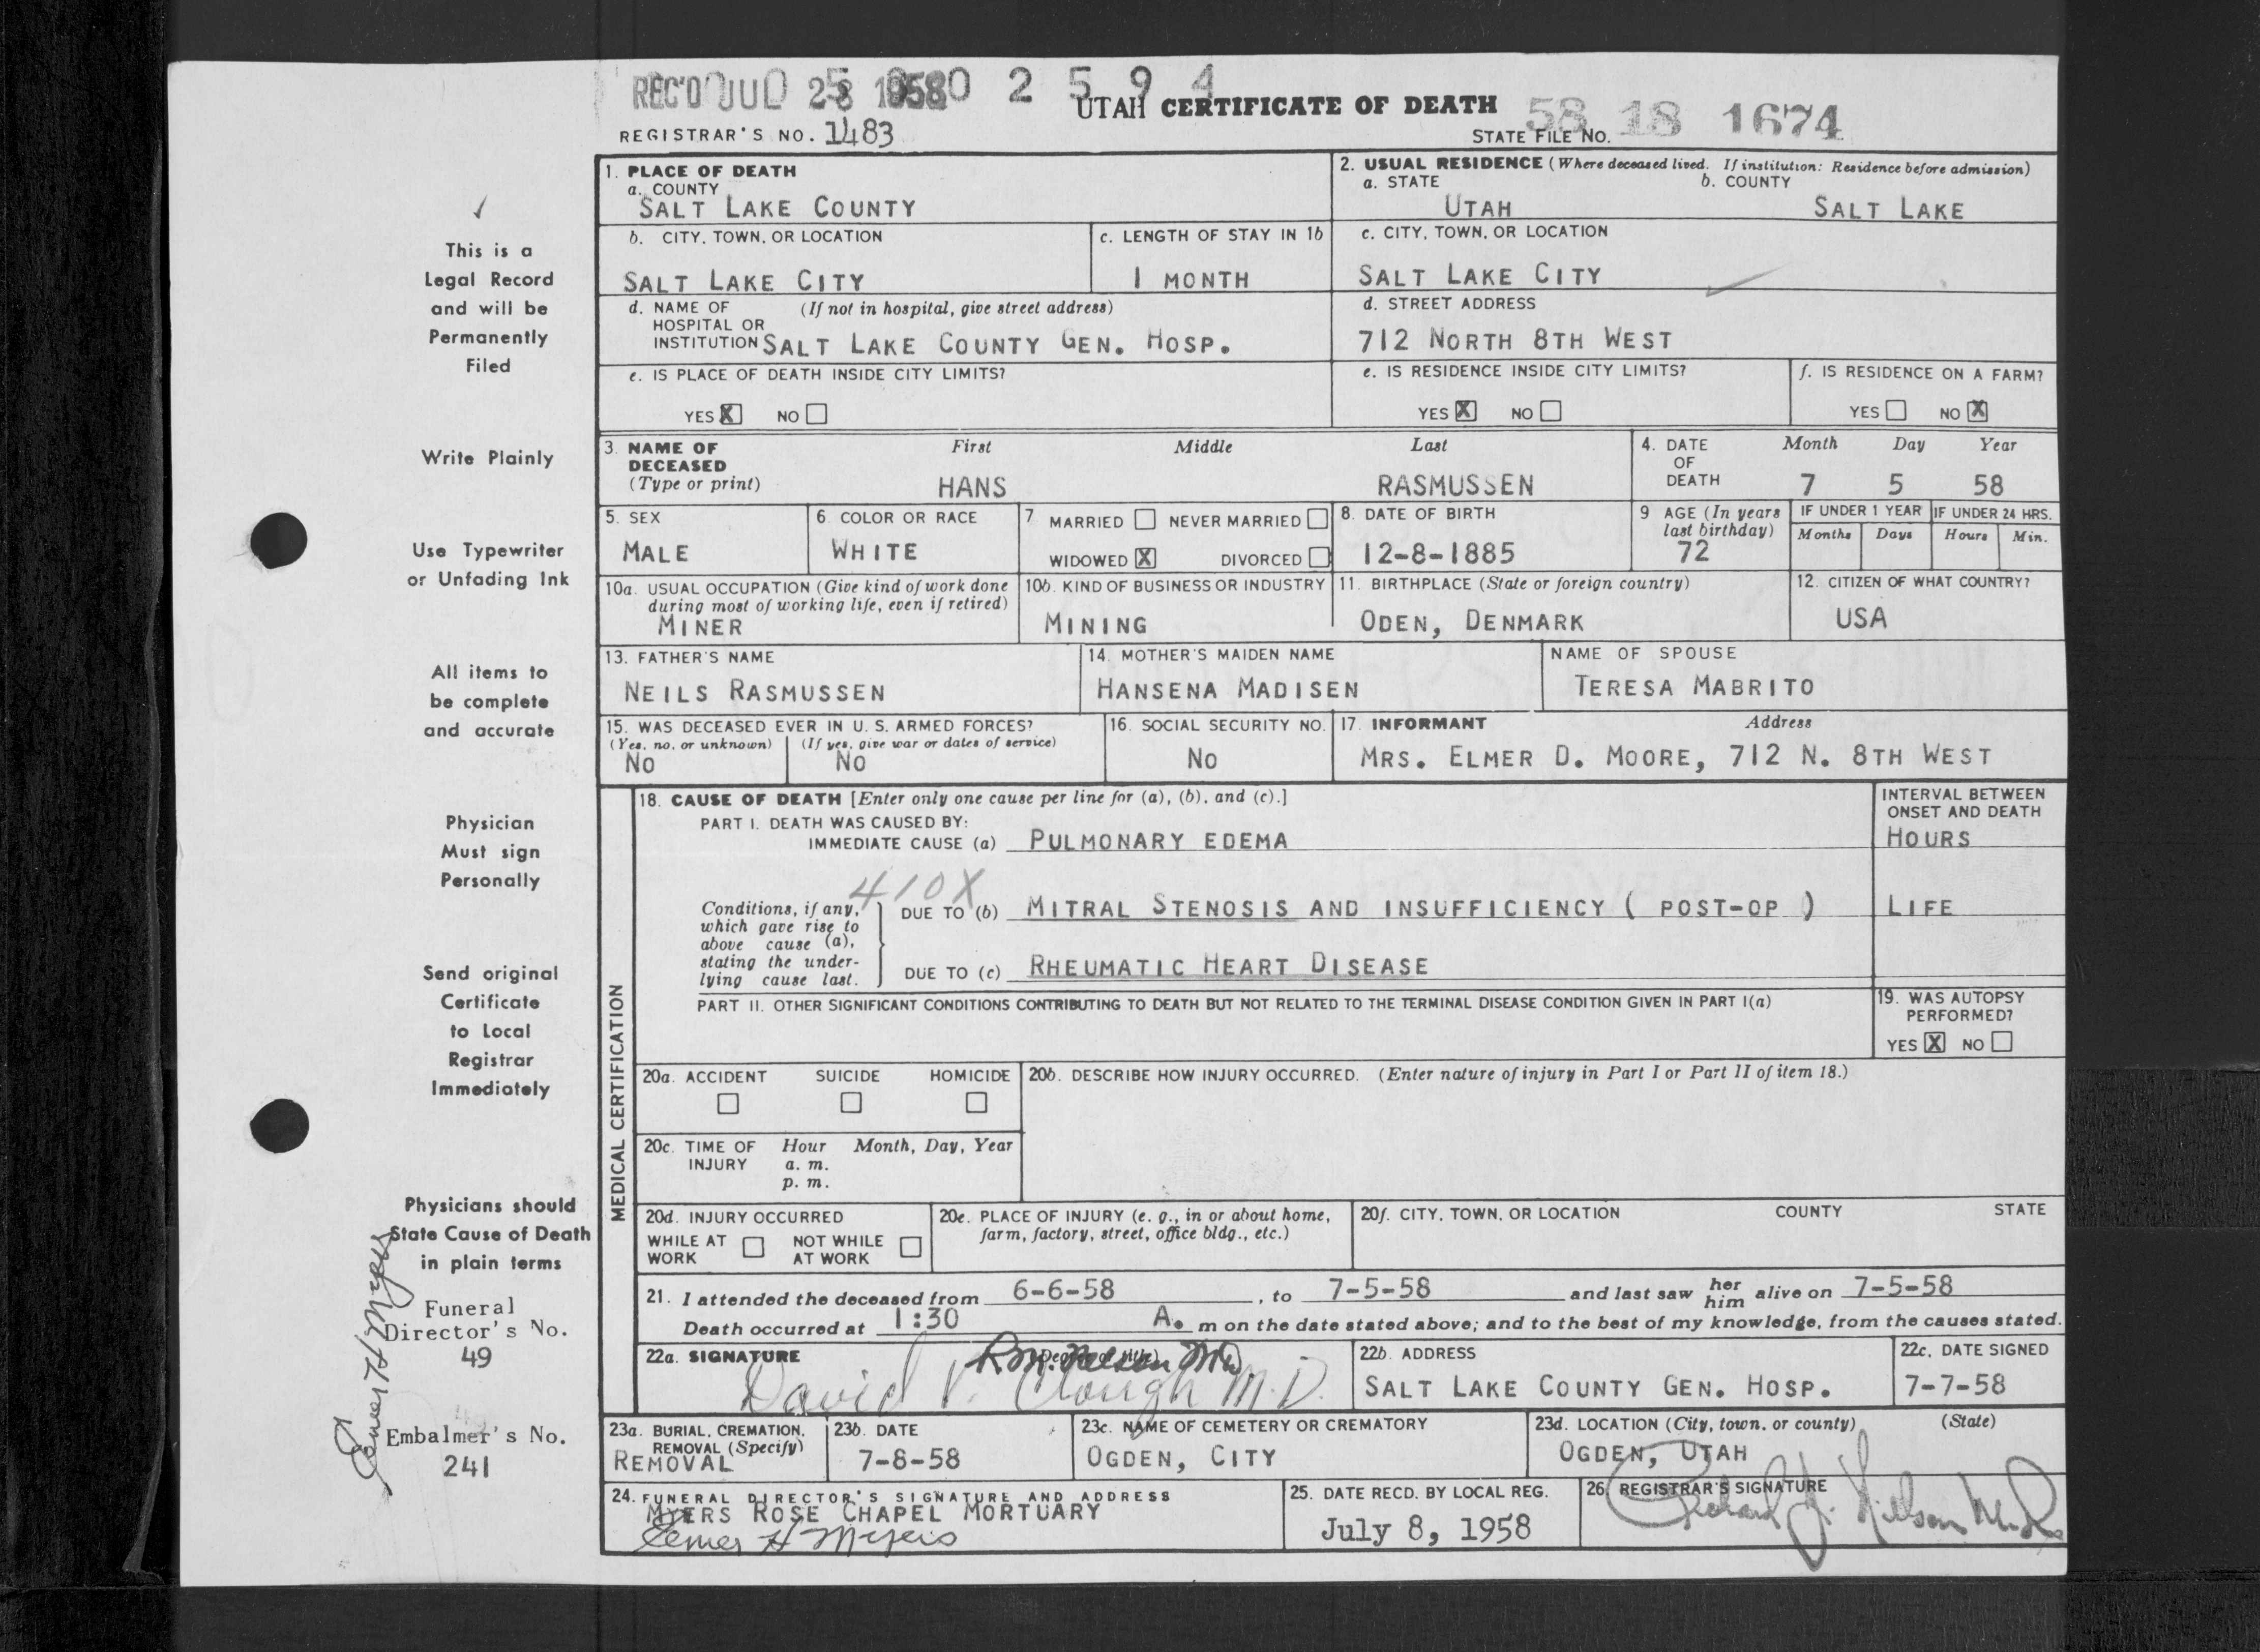 UTAH CERTIFICATE OF DEATH
REGISTRAR'S NO. 1483
STATE FILE NO. 58 18 1674
1. PLACE OF DEATH
a. COUNTY
SALT LAKE COUNTY
2. USUAL RESIDENCE (Where deceased lived. If institution: Residence before admission)
a. STATE b. COUNTY
UTAH SALT LAKE
b. CITY, TOWN, OR LOCATION
SALT LAKE CITY
c. LENGTH OF STAY IN 1b
1 MONTH
c. CITY, TOWN, OR LOCATION
SALT LAKE CITY
d. NAME OF (If not in hospital, give street address)
HOSPITAL OR
INSTITUTION SALT LAKE COUNTY GEN. HOSP.
d. STREET ADDRESS
712 NORTH 8TH WEST
e. IS PLACE OF DEATH INSIDE CITY LIMITS?
YES X NO
e. IS RESIDENCE INSIDE CITY LIMITS?
YES X NO
f. IS RESIDENCE ON A FARM?
YES NO X
3. NAME OF DECEASED (Type or print)
First Middle Last
HANS RASMUSSEN
4. DATE OF DEATH
Month Day Year
7 5 58
5. SEX
MALE
6. COLOR OR RACE
WHITE
7 MARRIED NEVER MARRIED
WIDOWED X DIVORCED
8. DATE OF BIRTH
12-8-1885
9 AGE (In years last birthday)
72
IF UNDER 1 YEAR
Months Days
IF UNDER 24 HRS.
Hours Min.
10a. USUAL OCCUPATION (Give kind of work done
during most of working life, even if retired)
MINER
10b. KIND OF BUSINESS OR INDUSTRY
MINING
11. BIRTHPLACE (State or foreign country)
ODEN, DENMARK
12. CITIZEN OF WHAT COUNTRY?
USA
13. FATHER'S NAME
NEILS RASMUSSEN
14. MOTHER'S MAIDEN NAME
HANSENA MADISEN
NAME OF SPOUSE
TERESA MABRITO
15. WAS DECEASED EVER IN U.S. ARMED FORCES?
(Yes, no, or unknown) (If yes, give war or dates of service)
NO NO
16. SOCIAL SECURITY NO.
NO
17. INFORMANT Address
MRS. ELMER D. MOORE, 712 N. 8TH WEST
MEDICAL CERTIFICATION
18. CAUSE OF DEATH [Enter only one cause per line for (a), (b), and (c).]
INTERVAL BETWEEN
ONSET AND DEATH
PART I. DEATH WAS CAUSED BY:
IMMEDIATE CAUSE (a) PULMONARY EDEMA HOURS
410X
Conditions, if any,
which gave rise to
above cause (a),
stating the under-
lying cause last.
DUE TO (b) MITRAL STENOSIS AND INSUFFICIENCY ( POST-OP ) LIFE
DUE TO (c) RHEUMATIC HEART DISEASE
PART II. OTHER SIGNIFICANT CONDITIONS CONTRIBUTING TO DEATH BUT NOT RELATED TO THE TERMINAL DISEASE CONDITION GIVEN IN PART I(a)
19. WAS AUTOPSY
PERFORMED?
YES X NO
20a. ACCIDENT SUICIDE HOMICIDE
20b. DESCRIBE HOW INJURY OCCURRED. (Enter nature of injury in Part I or Part II of item 18.)
20c. TIME OF INJURY Hour Month, Day, Year
a. m.
p. m.
20d. INJURY OCCURRED
WHILE AT WORK NOT WHILE AT WORK
20e. PLACE OF INJURY (e. g., in or about home,
farm, factory, street, office bldg., etc.)
20f. CITY, TOWN, OR LOCATION COUNTY STATE
21. I attended the deceased from 6-6-58, to 7-5-58 and last saw her him alive on 7-5-58
Death occurred at 1:30 A. m on the date stated above; and to the best of my knowledge, from the causes stated.
22a. SIGNATURE (Degree or title)
R.M. Nelson MD
David V. Clough M.D.
22b. ADDRESS
SALT LAKE COUNTY GEN. HOSP.
22c. DATE SIGNED
7-7-58
23a. BURIAL, CREMATION,
REMOVAL (Specify)
REMOVAL
23b. DATE
7-8-58
23c. NAME OF CEMETERY OR CREMATORY
OGDEN, CITY
23d. LOCATION (City, town, or county) (State)
OGDEN, UTAH
24. FUNERAL DIRECTOR'S SIGNATURE AND ADDRESS
MYERS ROSE CHAPEL MORTUARY
Elmer H Myers
25. DATE RECD. BY LOCAL REG.
July 8, 1958
26 REGISTRAR'S SIGNATURE
This is a
Legal Record
and will be
Permanently
Filed
Write Plainly
Use Typewriter
or Unfading Ink
All items to
be complete
and accurate
Physician
Must sign
Personally
Send original
Certificate
to Local
Registrar
Immediately
Physicians should
State Cause of Death
in plain terms
Funeral
Director's No.
49
Embalmer's No.
241
Elmer H Myers